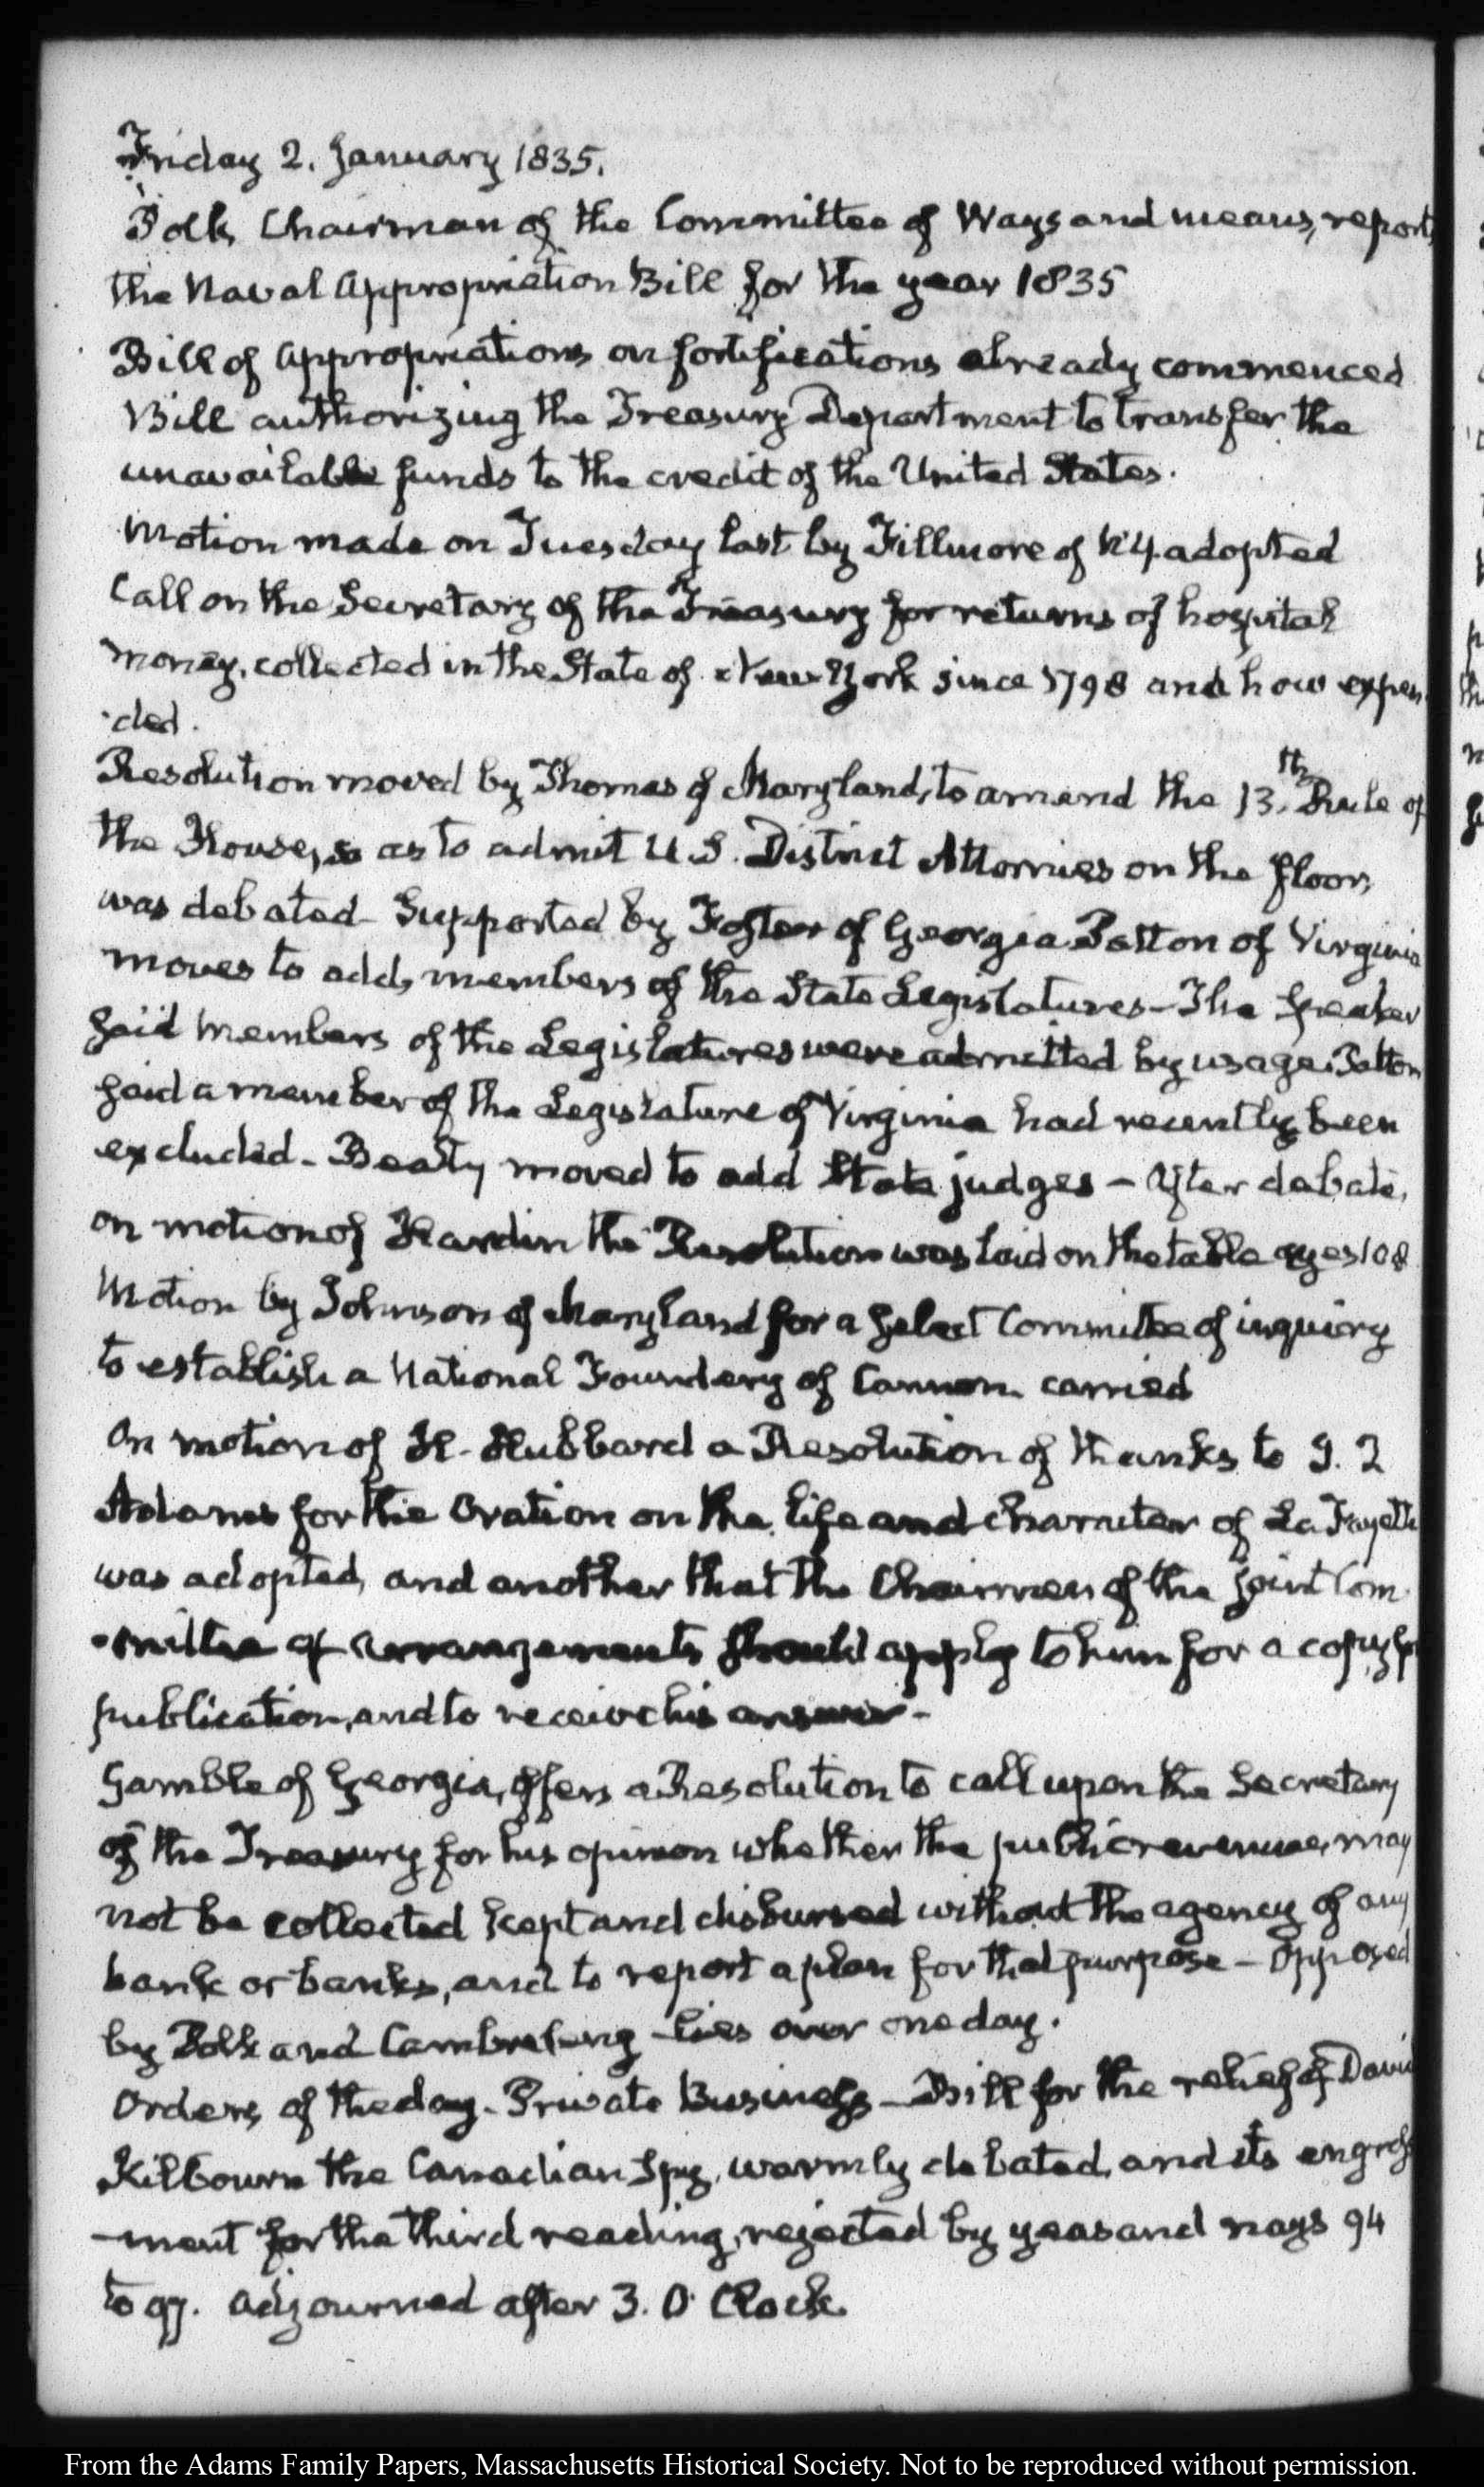 Friday 2. January 1835.
Polk, Chairman of the Committee of Ways and means, report,
the Naval Appropriation Bill for the year 1835
Bill of Appropriations on fortifications already commenced
Bill authorizing the Treasury Department to transfer the
unavailable funds to the credit of the United States.
Motion made on Tuesday last by Fillmore of N.Y. adopted
Call on the Secretary of the Treasury for returns of hospital
money, collected in the State of New York since 1798 and how expen
ded.
Resolution moved by Thomas of Maryland, to amend the 13.th Rule of
the House, so as to admit U.S. District Attornies on the floor,
was debated– Supported by Foster of Georgia Patton of Virginia
moves to add, members of the State Legislatures– The Speaker
said members of the Legislatures were admitted by usage. Patton
said a member of the Legislature of Virginia had recently been
excluded– Beaty moved to add State judges– After debate,
on motion of Hardin the Resolution was laid on the table ayes 108
Motion by Johnson of Maryland for a Select Committee of inquiery
to establish a National Foundery of Cannon carried
On motion of H. Hubbard a Resolution of thanks to J. Q
Adams for the Oration on the life and character of La Fayette
was adopted, and another that the Chairmen of the joint Com
-mittee of arrangements should apply to him for a copy for
publication, and to receive his answer–
Gamble of Georgia, offers a Resolution to call upon the Secretary
of the Treasury for his opinion whether the public revenue, may
not be collected kept and disbursed without the agency of any
bank or banks, and to report a plan for that purpose– opposed
by Polk and Cambreleng– lies over one day.
Orders of the day– Private Business– Bill for the relief of David
Kilbourn the Canadian Spy, warmly debated, and its engross
-ment for the third reading, rejected by yeas and nays 94
to 97. Adjourned after 3. O'Clock.
From the Adams Family Papers, Massachusetts Historical Society. Not to be reproduced without permission.